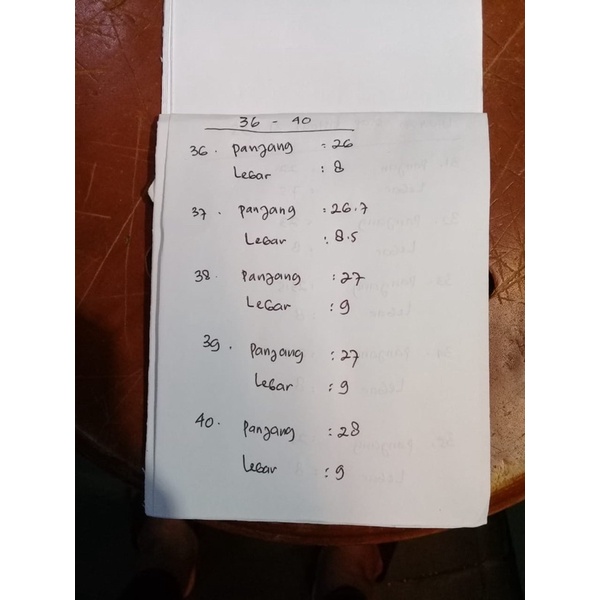 36 - 40
36. Panjang : 26
Lebar : 8
37. Panjang : 26.7
Lebar : 8.5
38. Panjang : 27
Lebar : 9
39. Panjang : 27
Lebar : 9
40. Panjang : 28
Lebar : 9